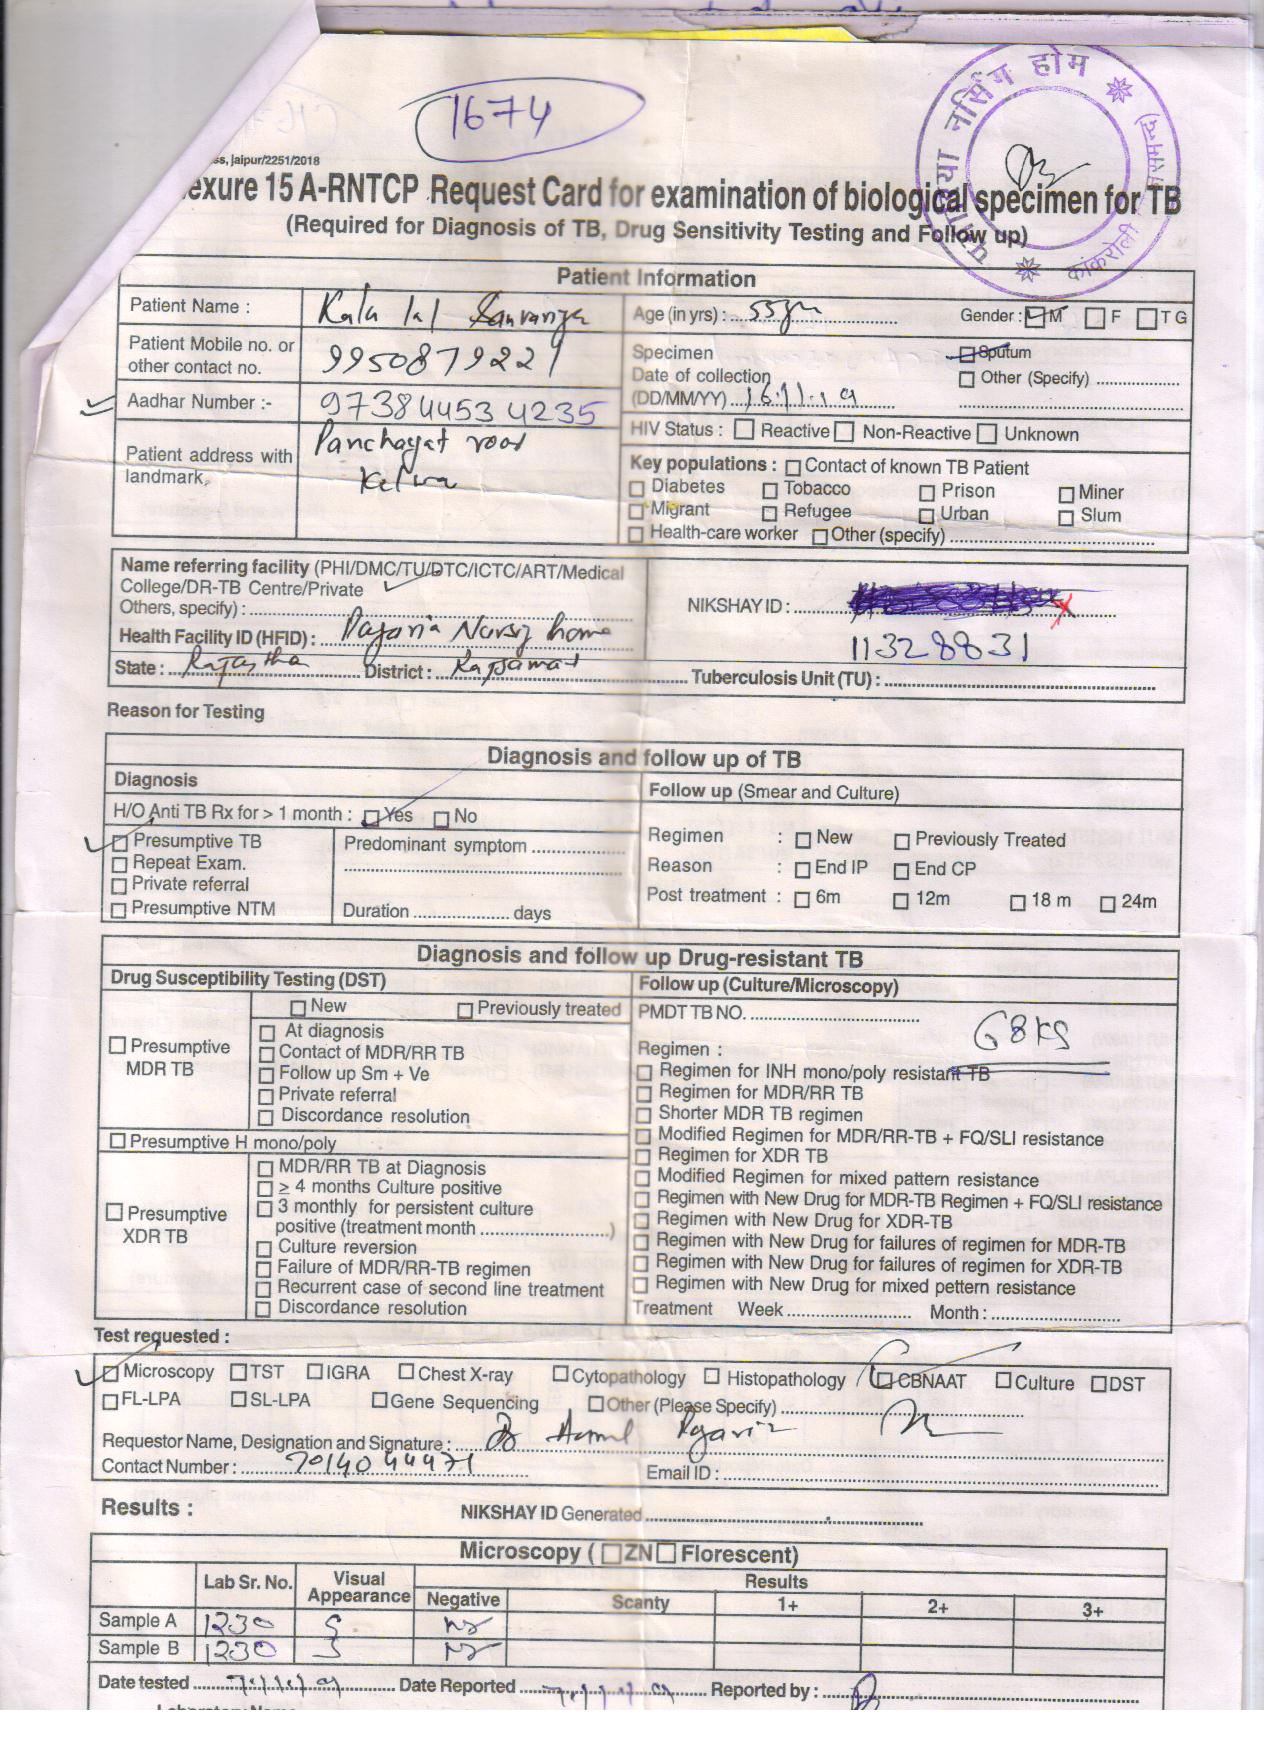 1674
ss, jaipur/2251/2018
exure 15 A-RNTCP Request Card for examination of biological specimen for TB
(Required for Diagnosis of TB, Drug Sensitivity Testing and Follow up)
नर्सिंग होम
कांकरोली
Patient Information
Patient Name : Kala lal
Age (in yrs) : 55 yr
Gender : M F T G
Patient Mobile no. or other contact no. 9950879221
Specimen Sputum
Date of collection Other (Specify)
(DD/MM/YY) 16.11.19
Aadhar Number :- 9738 4453 4235
Patient address with landmark, Panchayat road
Kelwa
HIV Status : Reactive Non-Reactive Unknown
Key populations : Contact of known TB Patient
Diabetes Tobacco Prison Miner
Migrant Refugee Urban Slum
Health-care worker Other (specify)
Name referring facility (PHI/DMC/TU/DTC/ICTC/ART/Medical
College/DR-TB Centre/Private
Others, specify) :
Health Facility ID (HFID) : Pagaria Nursing home
State : Rajastha District : Rajsamand
NIKSHAY ID :
11328831
Tuberculosis Unit (TU) :
Reason for Testing
Diagnosis and follow up of TB
Diagnosis
H/O Anti TB Rx for > 1 month : Yes No
Presumptive TB Predominant symptom
Repeat Exam.
Private referral
Presumptive NTM Duration days
Follow up (Smear and Culture)
Regimen : New Previously Treated
Reason : End IP End CP
Post treatment : 6m 12m 18 m 24m
Diagnosis and follow up Drug-resistant TB
Drug Susceptibility Testing (DST)
New Previously treated
Presumptive MDR TB
At diagnosis
Contact of MDR/RR TB
Follow up Sm + Ve
Private referral
Discordance resolution
Presumptive H mono/poly
Presumptive XDR TB
MDR/RR TB at Diagnosis
≥ 4 months Culture positive
3 monthly for persistent culture
positive (treatment month )
Culture reversion
Failure of MDR/RR-TB regimen
Recurrent case of second line treatment
Discordance resolution
Follow up (Culture/Microscopy)
PMDT TB NO.
68 KG
Regimen :
Regimen for INH mono/poly resistant TB
Regimen for MDR/RR TB
Shorter MDR TB regimen
Modified Regimen for MDR/RR-TB + FQ/SLI resistance
Regimen for XDR TB
Modified Regimen for mixed pattern resistance
Regimen with New Drug for MDR-TB Regimen + FQ/SLI resistance
Regimen with New Drug for XDR-TB
Regimen with New Drug for failures of regimen for MDR-TB
Regimen with New Drug for failures of regimen for XDR-TB
Regimen with New Drug for mixed pettern resistance
Treatment Week Month :
Test requested :
Microscopy TST IGRA Chest X-ray Cytopathology Histopathology CBNAAT Culture DST
FL-LPA SL-LPA Gene Sequencing Other (Please Specify)
Requestor Name, Designation and Signature : Dr
Contact Number : 7014044471 Email ID :
Results : NIKSHAY ID Generated
Microscopy ( ZN Florescent)
Lab Sr. No. Visual Appearance Results
Negative Scanty 1+ 2+ 3+
Sample A 1230 S
Sample B 1230 S
Date tested Date Reported Reported by :